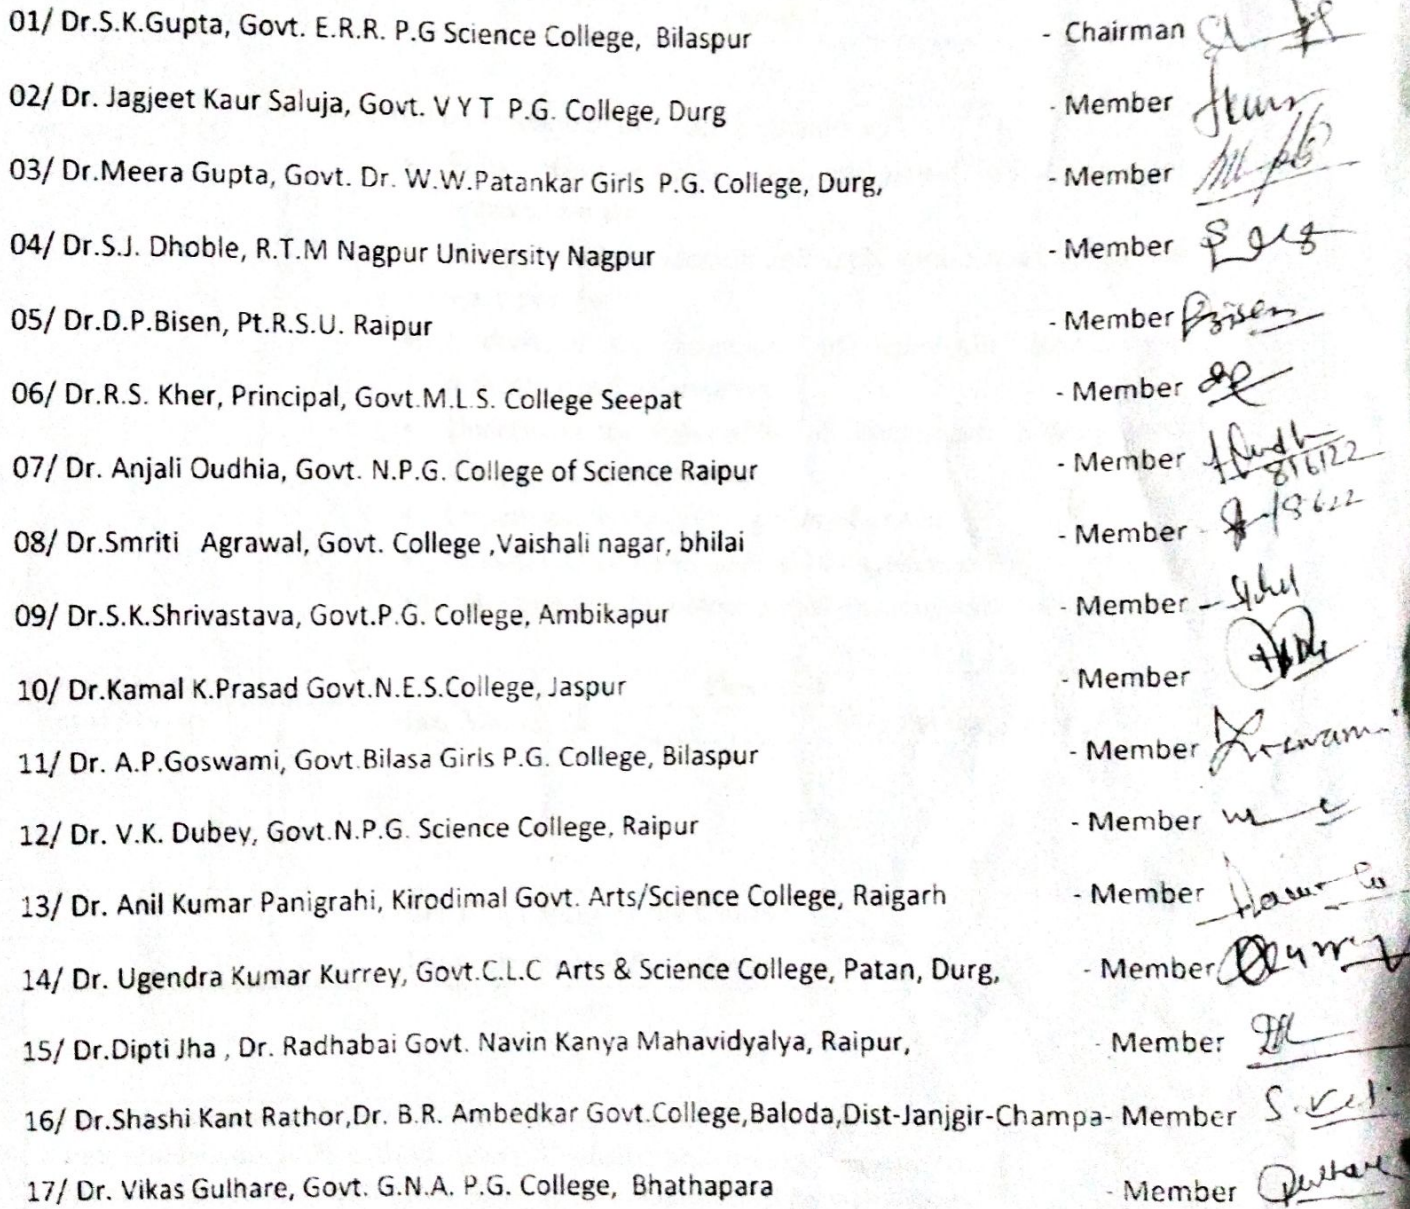 01/ Dr.S.K.Gupta, Govt. E.R.R. P.G Science College, Bilaspur - Chairman
02/ Dr. Jagjeet Kaur Saluja, Govt. V Y T P.G. College, Durg - Member
03/ Dr.Meera Gupta, Govt. Dr. W.W.Patankar Girls P.G. College, Durg, - Member
04/ Dr.S.J. Dhoble, R.T.M Nagpur University Nagpur - Member
05/ Dr.D.P.Bisen, Pt.R.S.U. Raipur - Member Bisen
06/ Dr.R.S. Kher, Principal, Govt.M.L.S. College Seepat - Member
07/ Dr. Anjali Oudhia, Govt. N.P.G. College of Science Raipur - Member 8/6/22
08/ Dr.Smriti Agrawal, Govt. College ,Vaishali nagar, bhilai - Member -
09/ Dr.S.K.Shrivastava, Govt.P.G. College, Ambikapur - Member -
10/ Dr.Kamal K.Prasad Govt.N.E.S.College, Jaspur - Member
11/ Dr. A.P.Goswami, Govt.Bilasa Girls P.G. College, Bilaspur - Member
12/ Dr. V.K. Dubey, Govt.N.P.G. Science College, Raipur - Member
13/ Dr. Anil Kumar Panigrahi, Kirodimal Govt. Arts/Science College, Raigarh - Member
14/ Dr. Ugendra Kumar Kurrey, Govt.C.L.C Arts & Science College, Patan, Durg, - Member
15/ Dr.Dipti Jha , Dr. Radhabai Govt. Navin Kanya Mahavidyalya, Raipur, - Member
16/ Dr.Shashi Kant Rathor,Dr. B.R. Ambedkar Govt.College,Baloda,Dist-Janjgir-Champa- Member
17/ Dr. Vikas Gulhare, Govt. G.N.A. P.G. College, Bhathapara - Member